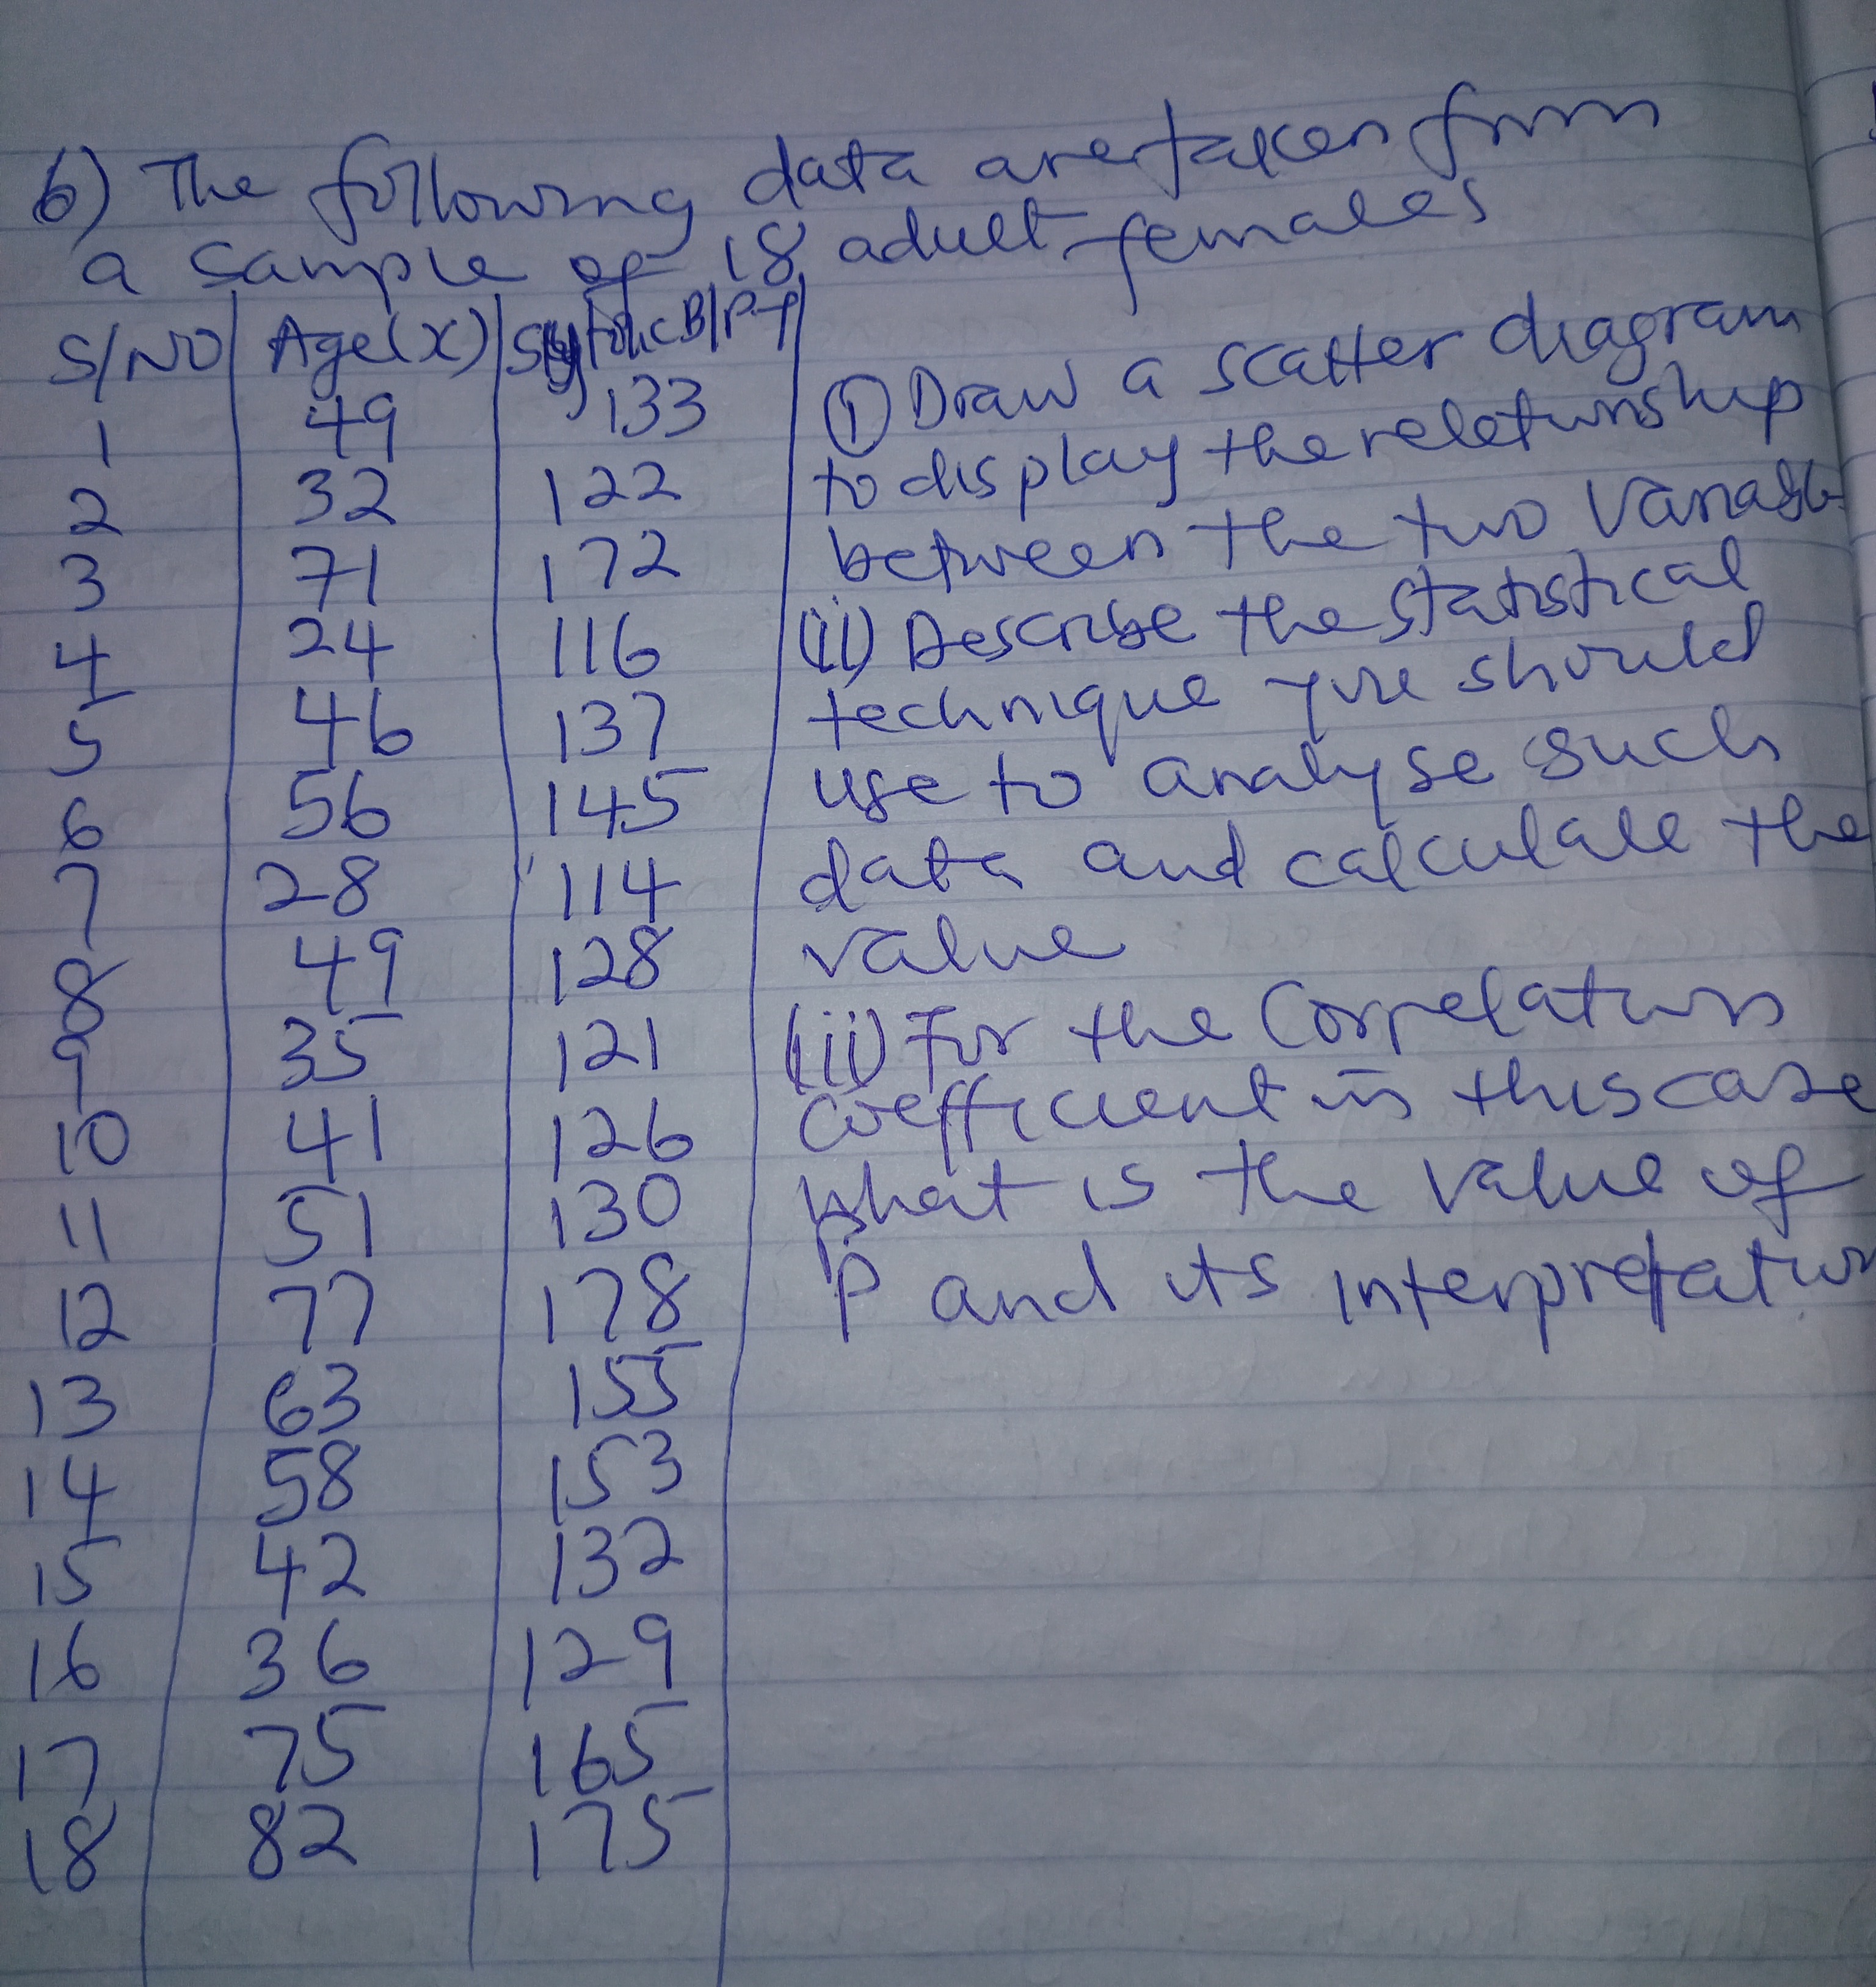 6) The following data are taken from
a sample of 18 adult females
S/NO Age(X) Systolic B/P
1 49 133
2 32 122
3 71 172
4 24 116
5 46 137
6 56 145
7 28 114
8 49 128
9 35 121
10 41 126
11 51 130
12 77 178
13 63 155
14 58 153
15 42 132
16 36 129
17 75 165
18 82 175
(i) Draw a scatter diagram
to display the reletionship
between the two
(ii) Describe the statistical
technique you should
use to analyse such
data and calculate the
value
(iii) For the Correlation
coefficient in this case
what is the value of
P and its interpretation